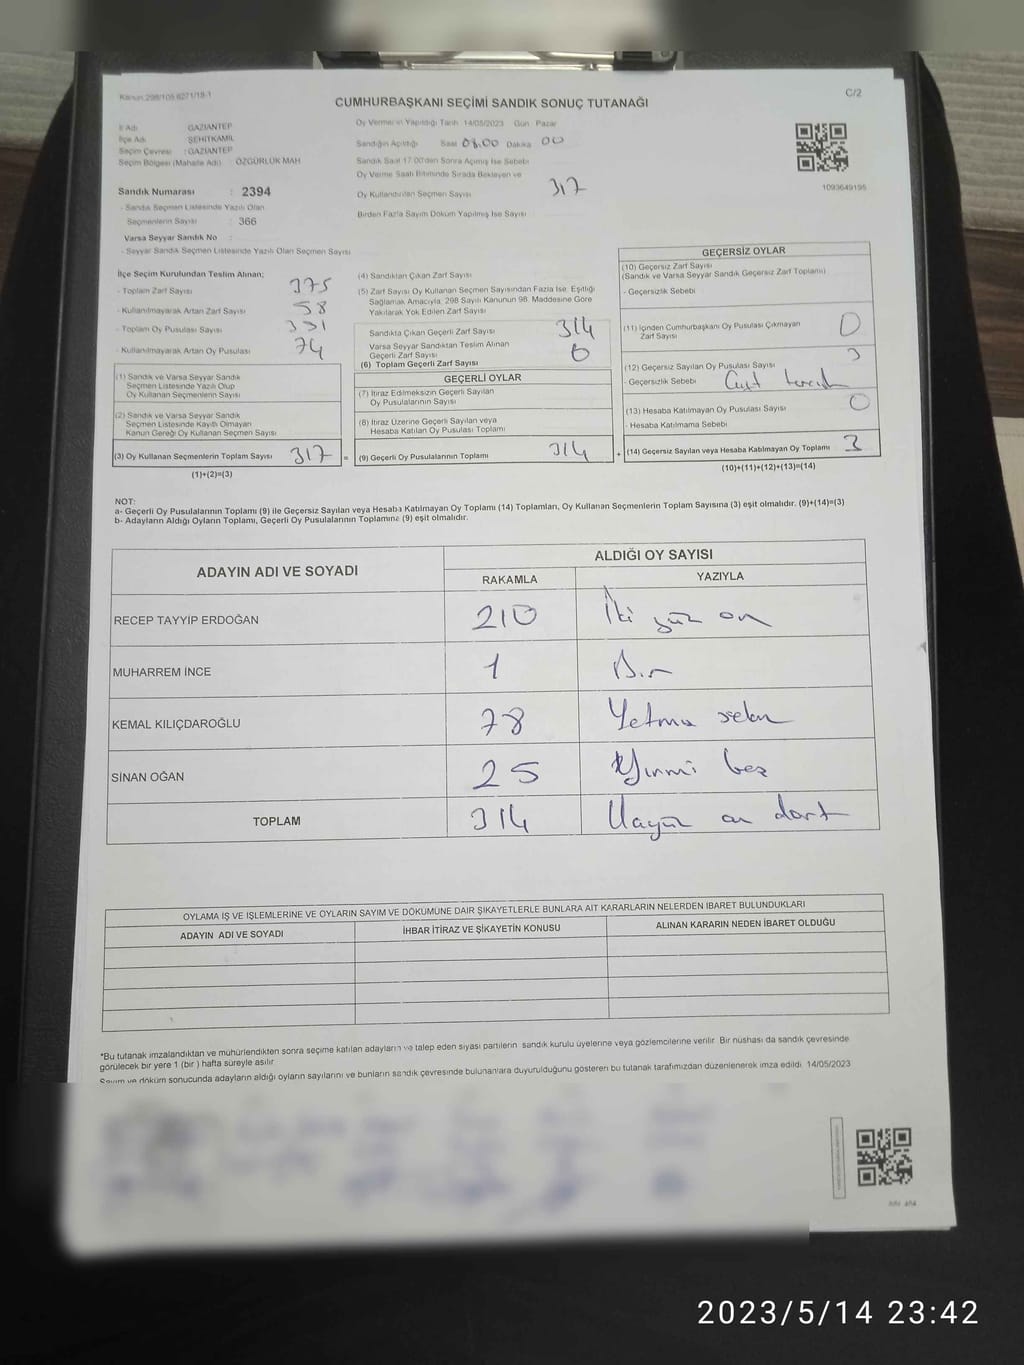 Kanun:298/105 6271/18-1
C/2
CUMHURBAŞKANI SEÇİMİ SANDIK SONUÇ TUTANAĞI
İl Adı GAZİANTEP
İlçe Adı ŞEHİTKAMİL
Seçim Çevresi : GAZİANTEP
Seçim Bölgesi (Mahalle Adı) : ÖZGÜRLÜK MAH
Oy Vermenin Yapıldığı Tarih 14/05/2023 Gün Pazar
Sandığın Açıldığı Saat 08.00 Dakika 00
Sandık Saat 17:00'den Sonra Açımış İse Sebebi
Oy Verme Saati Bitiminde Sırada Bekleyen ve
Oy Kullandırılan Seçmen Sayısı 317
Birden Fazla Sayım Döküm Yapılmış İse Sayısı
1093649195
Sandık Numarası : 2394
- Sandık Seçmen Listesinde Yazılı Olan
Seçmenlerin Sayısı : 366
Varsa Seyyar Sandık No :
- Seyyar Sandık Seçmen Listesinde Yazılı Olan Seçmen Sayısı
İlçe Seçim Kurulundan Teslim Alınan;
- Toplam Zarf Sayısı 375
- Kullanılmayarak Artan Zarf Sayısı 58
- Toplam Oy Pusulası Sayısı
- Kullanılmayarak Artan Oy Pusulası 74
(1) Sandık ve Varsa Seyyar Sandık
Seçmen Listesinde Yazılı Olup
Oy Kullanan Seçmenlerin Sayısı
(2) Sandık ve Varsa Seyyar Sandık
Seçmen Listesinde Kayıtlı Olmayan
Kanun Gereği Oy Kullanan Seçmen Sayısı
(3) Oy Kullanan Seçmenlerin Toplam Sayısı 317 =
(1)+(2)=(3)
(4) Sandıktan Çıkan Zarf Sayısı
(5) Zarf Sayısı Oy Kullanan Seçmen Sayısından Fazla İse, Eşitliği
Sağlamak Amacıyla, 298 Sayılı Kanunun 98. Maddesine Göre
Yakılarak Yok Edilen Zarf Sayısı
Sandıkta Çıkan Geçerli Zarf Sayısı 314
Varsa Seyyar Sandıktan Teslim Alınan
Geçerli Zarf Sayısı 0
(6) Toplam Geçerli Zarf Sayısı
GEÇERLİ OYLAR
(7) İtiraz Edilmeksizin Geçerli Sayılan
Oy Pusulalarının Sayısı
(8) İtiraz Üzerine Geçerli Sayılan veya
Hesaba Katılan Oy Pusulası Toplamı
(9) Geçerli Oy Pusulalarının Toplamı 314 +
GEÇERSİZ OYLAR
(10) Geçersiz Zarf Sayısı
(Sandık ve Varsa Seyyar Sandık Geçersiz Zarf Toplamı)
- Geçersizlik Sebebi
(11) İçinden Cumhurbaşkanı Oy Pusulası Çıkmayan
Zarf Sayısı 0
(12) Geçersiz Sayılan Oy Pusulası Sayısı 3
- Geçersizlik Sebebi
(13) Hesaba Katılmayan Oy Pusulası Sayısı 0
- Hesaba Katılmama Sebebi
(14) Geçersiz Sayılan veya Hesaba Katılmayan Oy Toplamı 3
(10)+(11)+(12)+(13)=(14)
NOT:
a- Geçerli Oy Pusulalarının Toplamı (9) ile Geçersiz Sayılan veya Hesaba Katılmayan Oy Toplamı (14) Toplamları, Oy Kullanan Seçmenlerin Toplam Sayısına (3) eşit olmalıdır. (9)+(14)=(3)
b- Adayların Aldığı Oyların Toplamı, Geçerli Oy Pusulalarının Toplamına (9) eşit olmalıdır.
ADAYIN ADI VE SOYADI
ALDIĞI OY SAYISI
RAKAMLA YAZIYLA
RECEP TAYYİP ERDOĞAN 210 İki yüz on
MUHARREM İNCE 1 Bir
KEMAL KILIÇDAROĞLU 78 Yetmiş sekiz
SİNAN OĞAN 25 Yirmi beş
TOPLAM 314 Üçyüz on dört
OYLAMA İŞ VE İŞLEMLERİNE VE OYLARIN SAYIM VE DÖKÜMÜNE DAİR ŞİKAYETLERLE BUNLARA AİT KARARLARIN NELERDEN İBARET BULUNDUKLARI
ADAYIN ADI VE SOYADI İHBAR İTİRAZ VE ŞİKAYETİN KONUSU ALINAN KARARIN NEDEN İBARET OLDUĞU
*Bu tutanak imzalandıktan ve mühürlendikten sonra seçime katılan adayların ve talep eden siyasi partilerin sandık kurulu üyelerine veya gözlemcilerine verilir. Bir nüshası da sandık çevresinde
görülecek bir yere 1 (bir ) hafta süreyle asılır.
Sayım ve döküm sonucunda adayların aldığı oyların sayılarını ve bunların sandık çevresinde bulunanlara duyurulduğunu gösteren bu tutanak tarafımızdan düzenlenerek imza edildi. 14/05/2023
2023/5/14 23:42